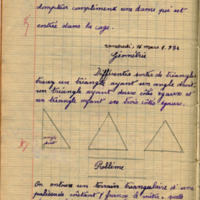 dompteur complimente une dame qui est
entrée dans la cage.
vendredi 16 mars 1934
Géométrie
Différentes sortes de triangles
tracer un triangle ayant un angle droit
un triangle ayant deux côtés égaux et
un triangle ayant ses trois côtés égaux.
angle
droit
Problème
On entoure un terrain triangulaire d'une
palissade coûtant